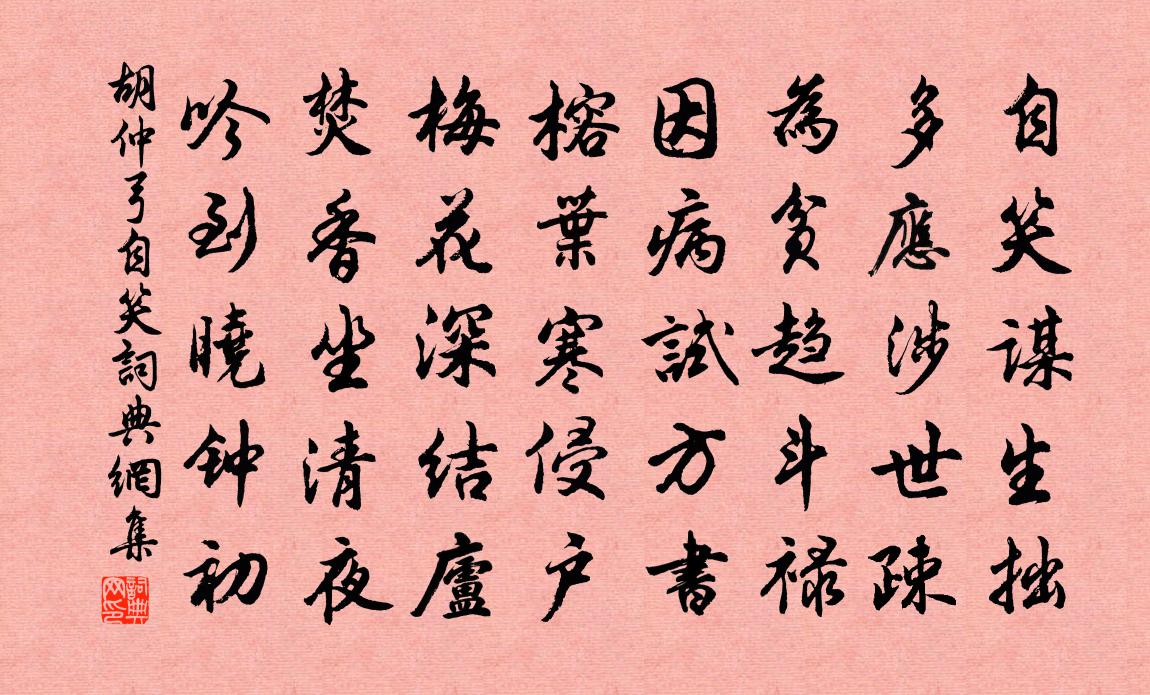 自笑謀生拙
多應涉世疎
為貧趋斗禄
因病試方書
榕葉寒侵户
梅花深结廬
焚香坐清夜
吟到曉钟初
胡仲弓自笑詞典網集
詞典網印